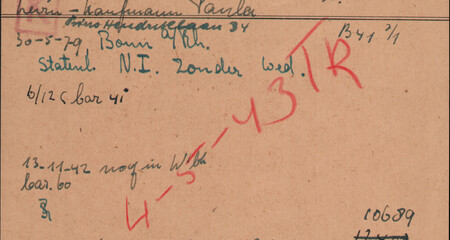 Kaufmann Paula
Prins Hendriklaan 34
30-5-79, Bonn a/Rh. B41 2/1
Statenl. N.I. Zonder bed.
6/12 bar 41
4-5-43 TR
13-11-42 nog in Wbk
bar. 60
10689